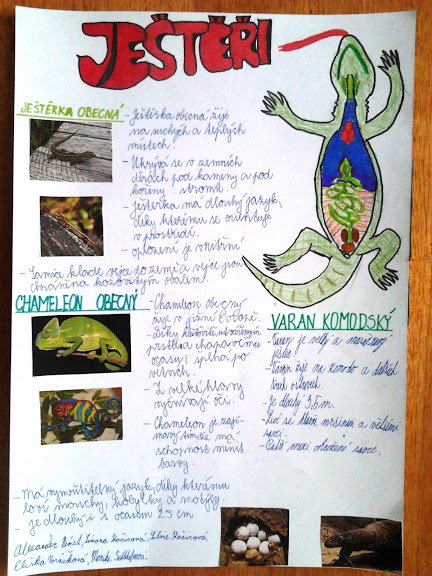 JEŠTĚŘI
JEŠTĚRKA OBECNÁ
- Ještěrka obecná žije
na suchých a teplých
místech.
- Ukrývá se v zemních
děrách pod kameny a pod
kořeny stromů.
- Ještěrka má dlouhý jazyk,
díky kterému se orientuje
v prostředí.
- oplození je vnitřní
- Samice klade vejce do země a vejce jsou
chráněna kožovitým obalem.
CHAMELEON OBECNÝ
- Chameleon obecný
žije v jižní Evropě.
- Díky
prstů a chápavému
ocasu, šplhá po
větvích.
- Z velké hlavy
vyčnívají oči.
- Chameleon je zají-
mavý má
schopnost měnit
barvy.
- Má vymrštitelný jazyk, díky kterému
loví mouchy, kobylky a motýly.
- je dlouhý i s ocasem 25 cm
VARAN KOMODSKÝ
- Varan je velký a masožravý
ještěr.
- Varan žije na Komodo a dalších
ostrovech.
- Je dlouhý 3,5 m.
- Živí se hlavně mršinami a většími
savci.
- Patří mezi ohrožené